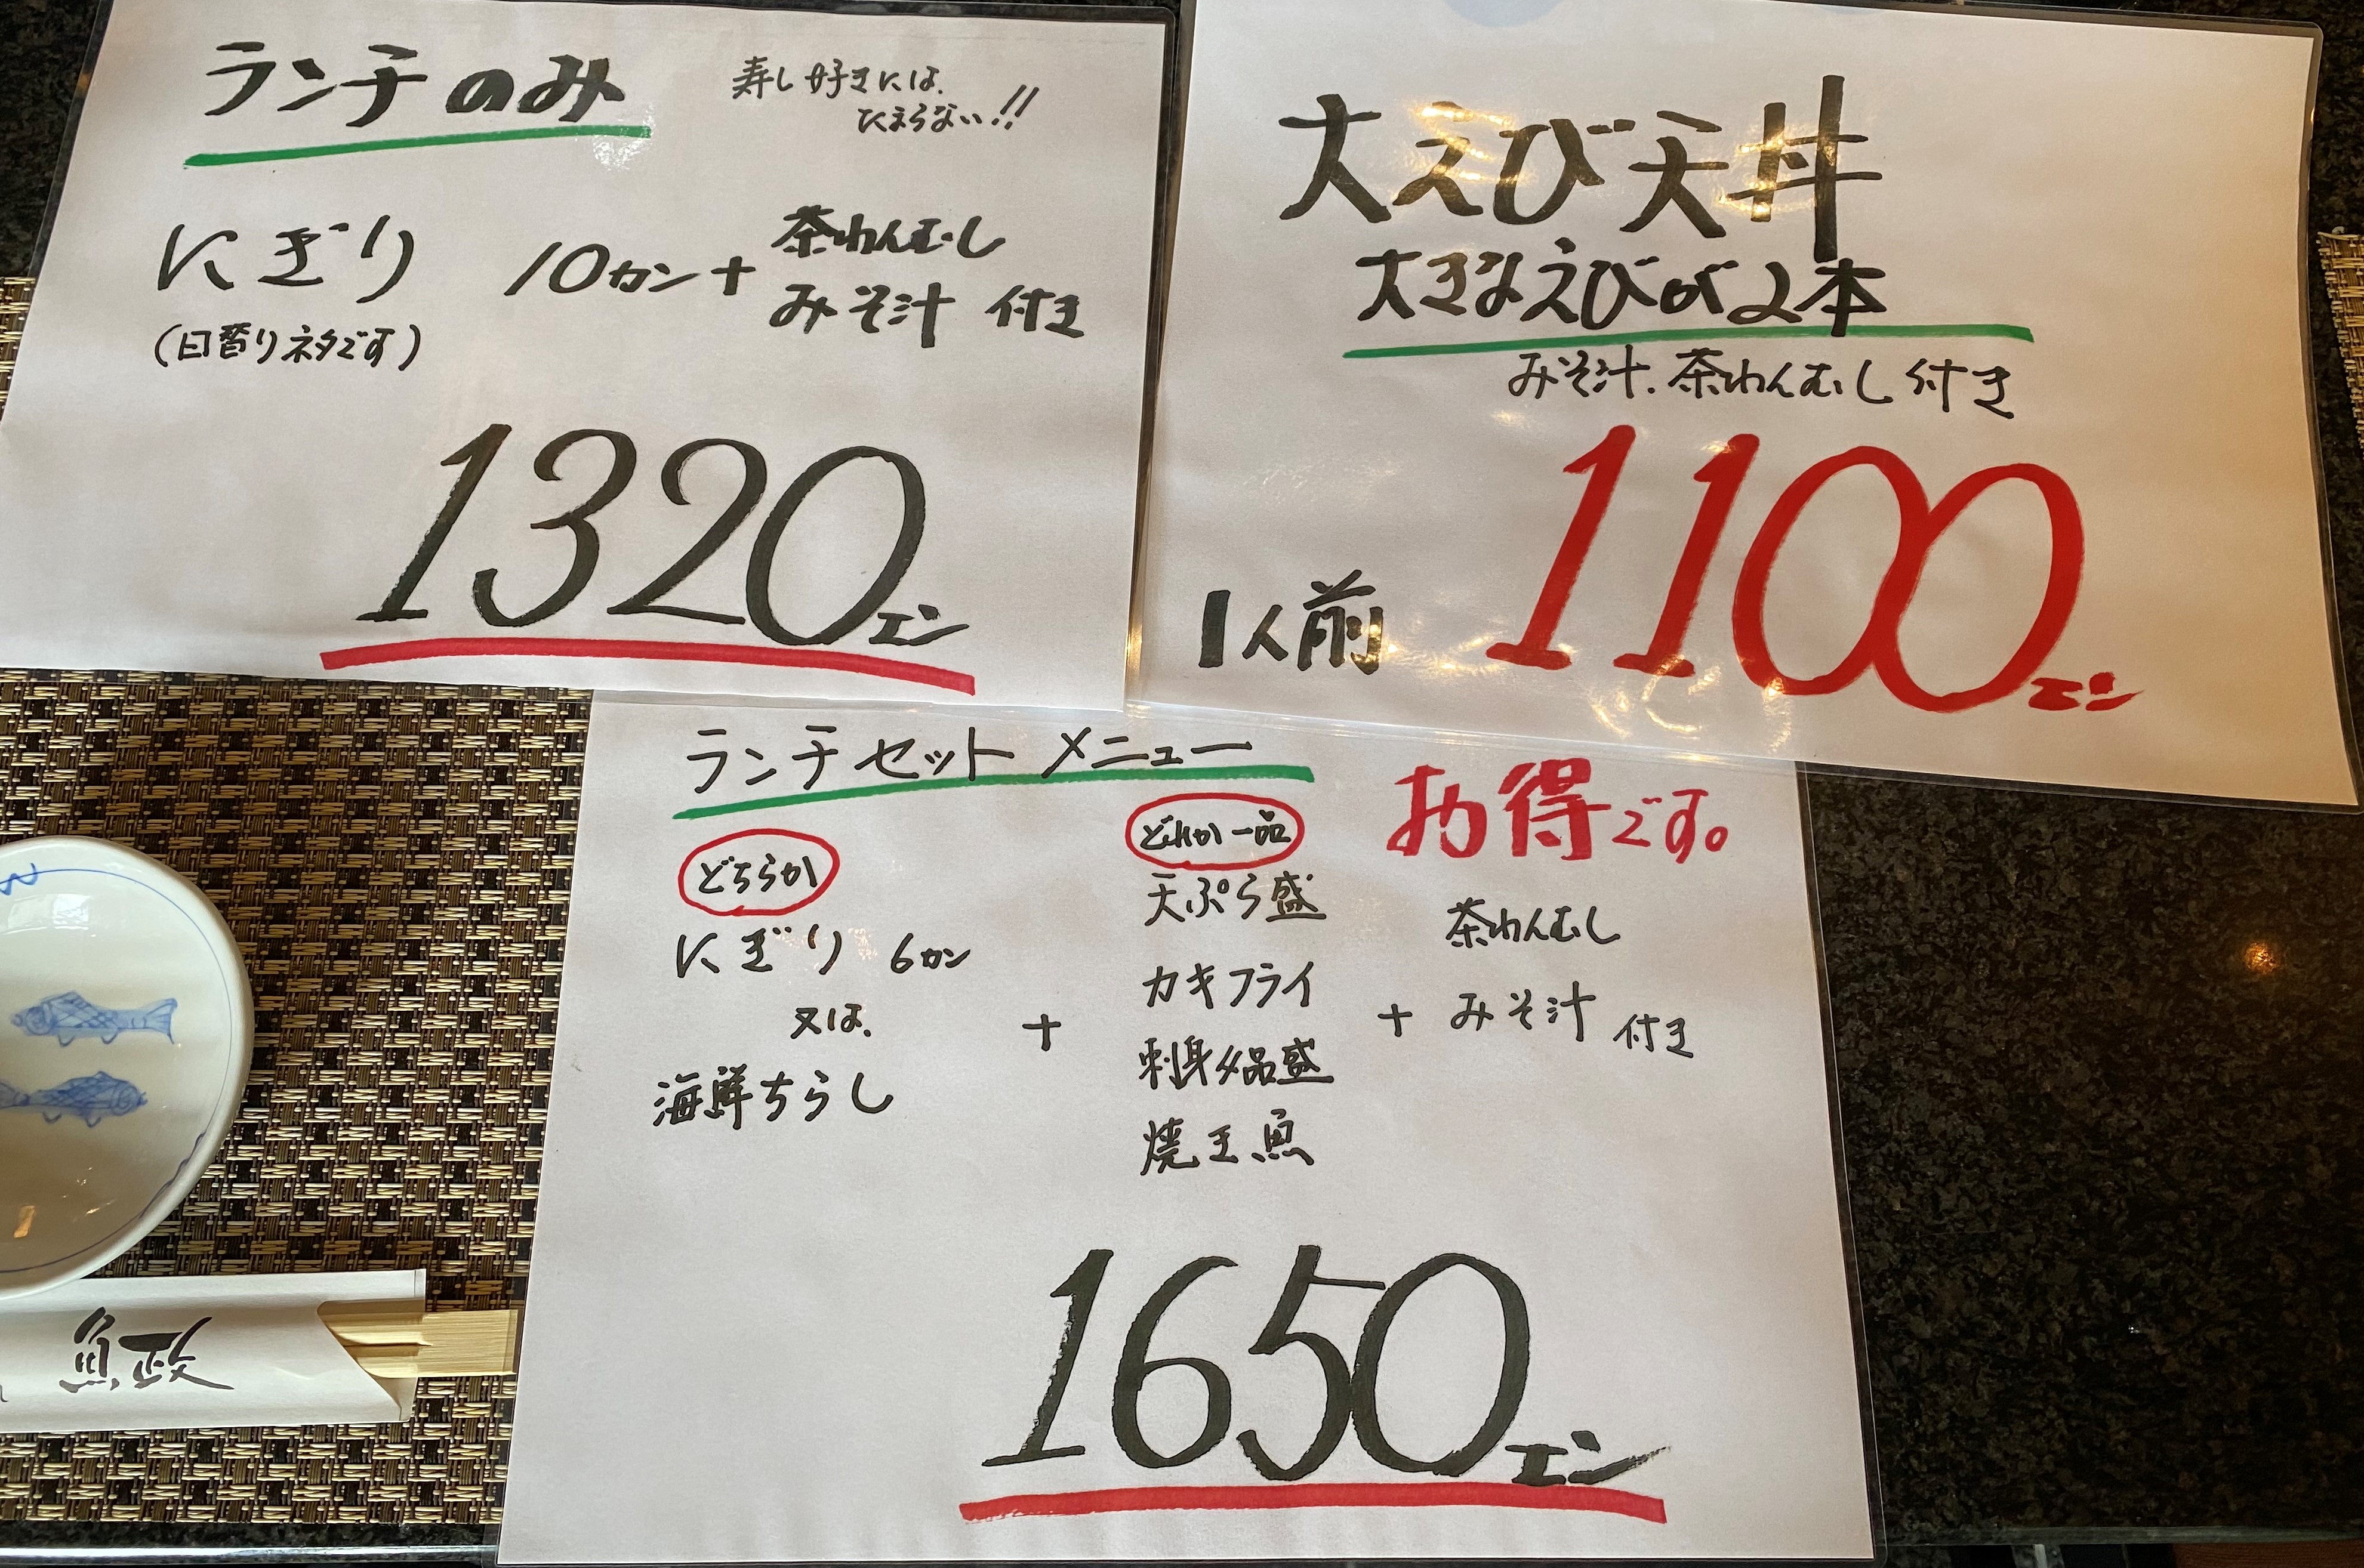 ランチのみ
寿し好きには、
たまらない!!
にぎり 10カン+
茶わんむし
みそ汁 付き
(日替りネタです)
1320エン
大えび天丼
大きなえびが2本
みそ汁.茶わんむし付き
1人前 1100エン
ランチセットメニュー
お得です。
どちらか
にぎり 6カン
又は、
海鮮ちらし
+
どれか一品
天ぷら盛
カキフライ
刺身4品盛
焼き魚
+
茶わんむし
みそ汁 付き
1650エン
魚政